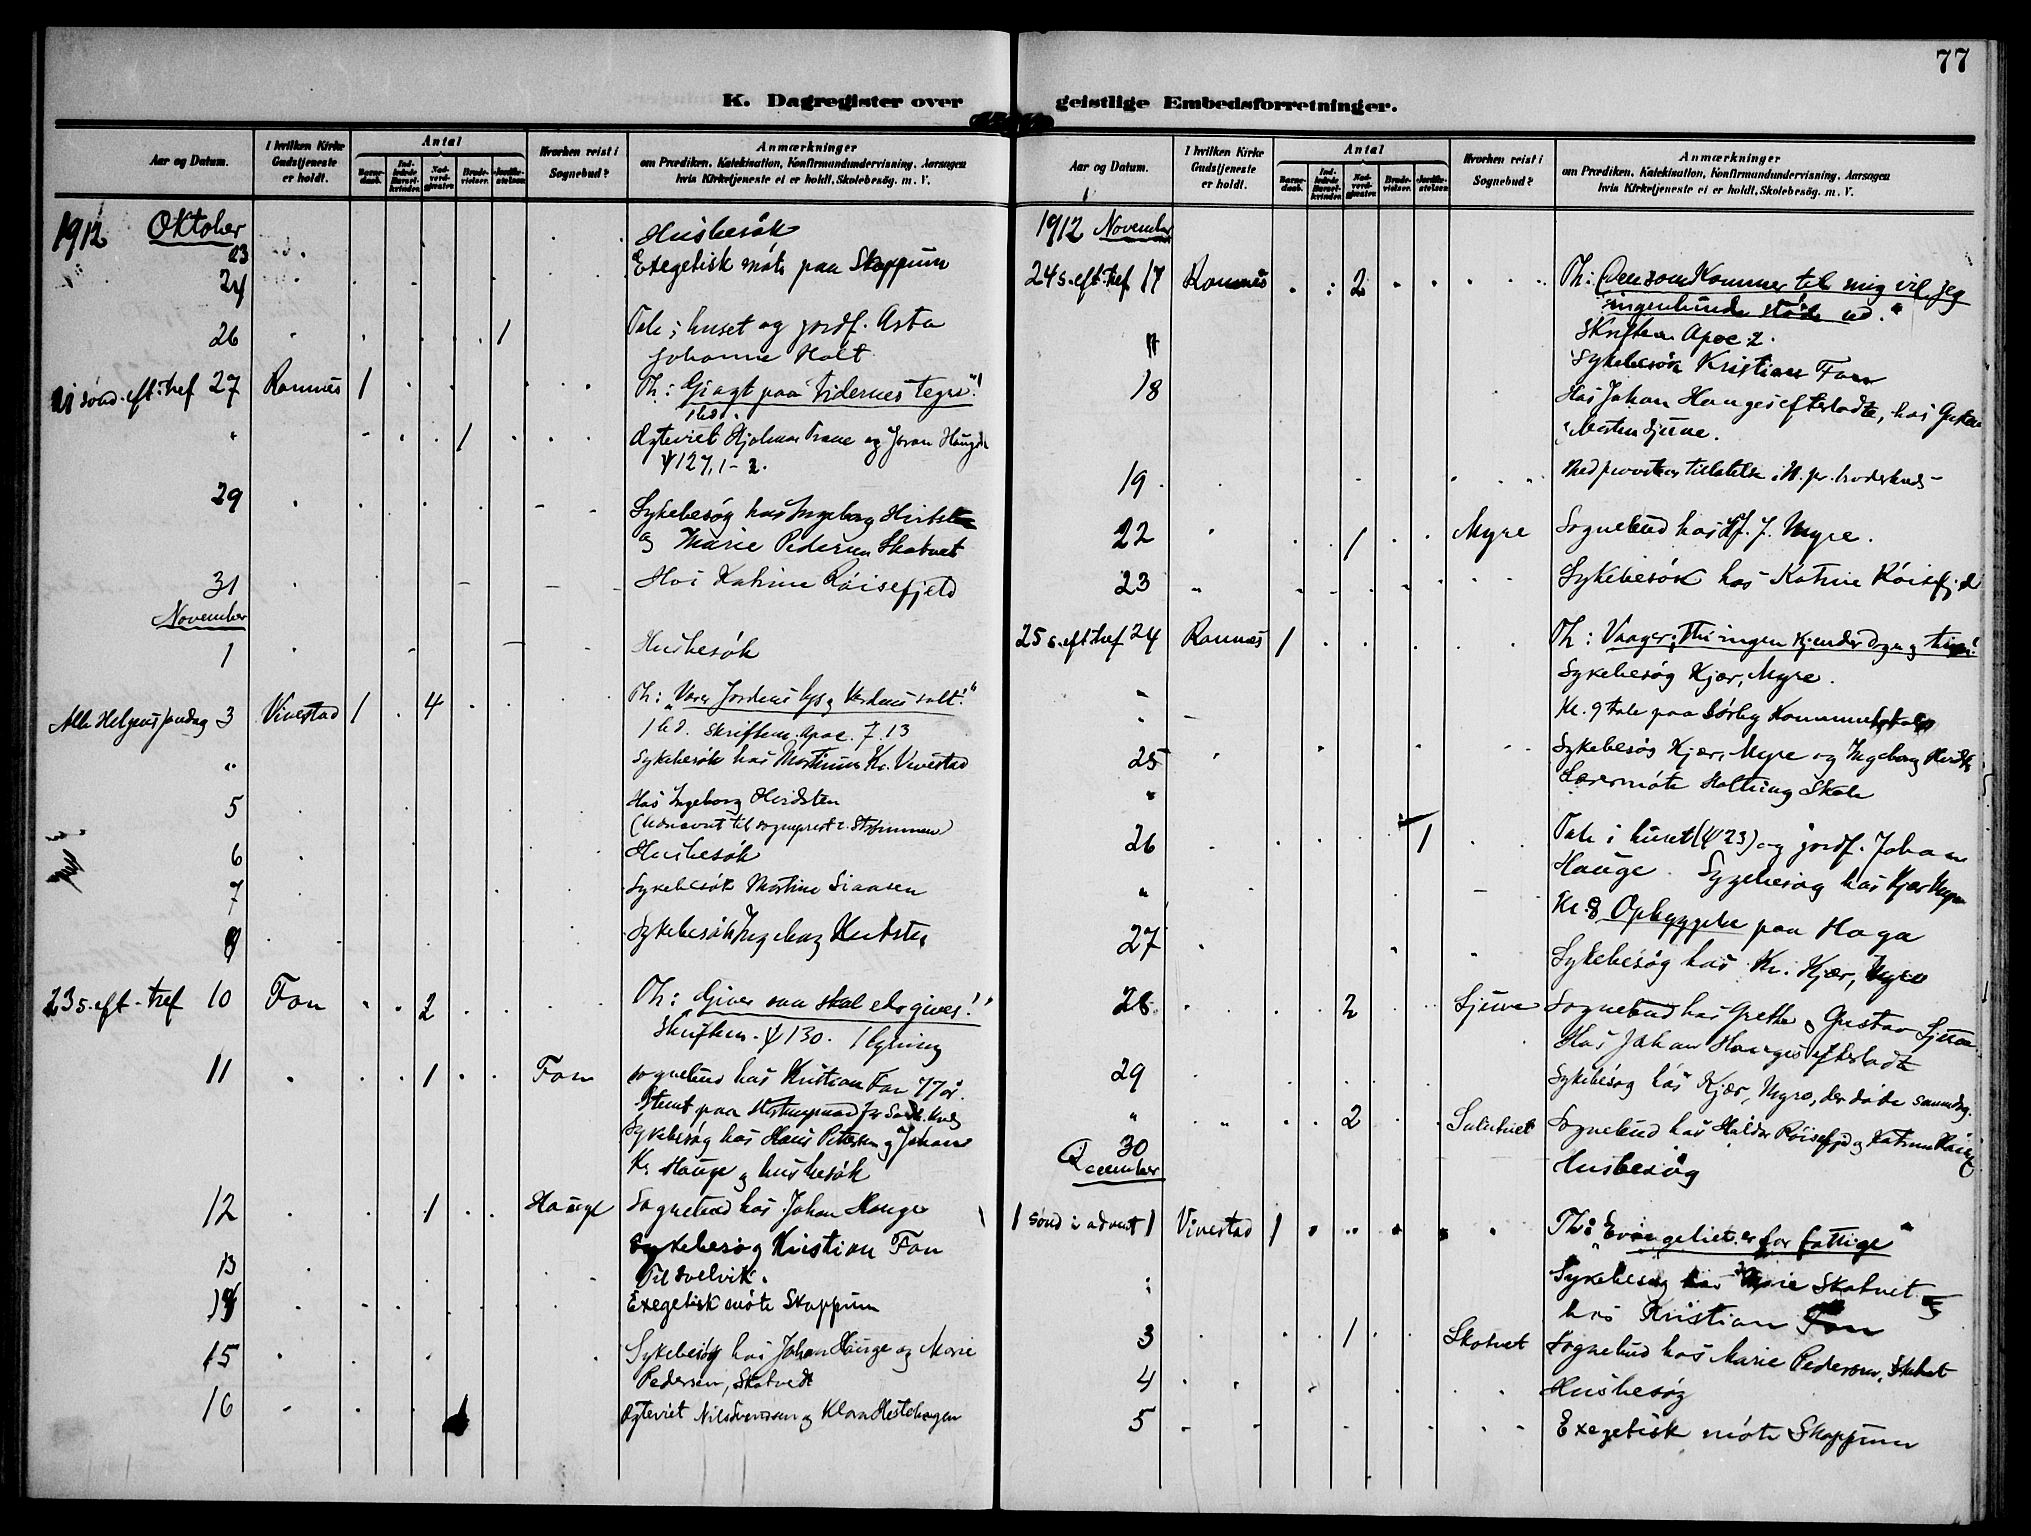 77
K. Dagregister over geistlige Embedsforretninger.
Aar og Datum.
I hvilken Kirke Gudstjeneste er holdt.
Antal
Barnedaab.
Indledede Barselkvinder.
Nadverdgjæster.
Brudevielser.
Jordfæstelser.
Hvorhen reist i Sognebud?
Anmærkninger
om Prædiken, Katekisation, Konfirmandundervisning, Aarsagen
hvis Kirketjeneste ei er holdt, Skolebesøg. m. V.
1912 Oktober
23 Husbesøk
24 Exegetisk møte paa Skoppum
26 1 Tale i huset og jordf. Asta
Johanne Holt
21 sønd. eft. tref 27 Ramnes 1 Th: Giagt paa tidernes tegn!"
1 bd.
" 1 Egteviet Hjalmar Trane og
ψ 127, 1-2.
29 Sykebesøg hos Ingeborg
og Marie Pedersen Skatvet
31 Hos Katrine Røisefjeld
November
1 Husbesøk
Alle Helgens søndag 3 Vivestad 1 4 Th: "Verer Jordens lys og Verdens salt!"
1 bd. Skriftem. Apoc. 7.13
" Sykebesøk hos Kr. Vivestad
5 Hos Ingeborg Hirdsten
(Utnævnt til sogneprest i Strømmen)
6 Husbesøk
7 Sykebesøk Martine
8 Sykebesøk Ingeborg
23 s. eft. tref 10 Fon 2 Th: Giver saa skal eder gives!"
Skriftem. ψ 130. 1 lysning
11 1 Fon Sognebud hos Kristian Fon 77 år.
Stemt paa
Sykebesøg hos Hans Pettersen og Johan
Kr. Hauge og husbesøk
12 1 Hauge Sognebud hos Johan Hauge
Sykebesøg Kristian Fon
13 Til Svelvik.
14 Exegetisk møte Skoppum
15 Sykebesøg hos Johan Hauge og Marie
Pedersen, Skatvedt
16 Egteviet Nils Svensen og Klara Hestehagen
Aar og Datum.
I hvilken Kirke Gudstjeneste er holdt.
Antal
Barnedaab.
Indledede Barselkvinder.
Nadverdgjæster.
Brudevielser.
Jordfæstelser.
Hvorhen reist i Sognebud?
Anmærkninger
om Prædiken, Katekisation, Konfirmandundervisning, Aarsagen
hvis Kirketjeneste ei er holdt, Skolebesøg. m. V.
1912 November
24 s. eft. tref 17 Ramnes 2 Th: Den som kommer til mig vil jeg
ingenlunde støde ud."
Skriftem Apoc 2.
" Sykebesøk Kristian Fon
18 Hos Johan Hauges efterladte, hos
19 Med provstens tillatelse i
22 1 Myre Sognebud hos J. Myre.
23 " Sykebesøk hos Katrine Røisefjeld
25 s. eft. tref 24 Ramnes 1 Th: Vaager; thi ingen kjender dagen og timen!
" Sykebesøg Kjær, Myre.
" Kl. 9 tale paa Sørby Kommunelokale
25 Sykebesøg Kjær, Myre og Ingeborg
" Lærermøte Holtung Skole
26 1 Tale i huset (ψ 23) og jordf. Johan
Hauge. Sygebesøg hos Kjær Myre
" Kl. 8 Opbyggelse paa Haga
27 Sykebesøg hos Kr. Kjær, Myre
28 2 Ljuve Sognebud hos Grethe og Gustav
Hos Johan Hauges efterladte
29 Sykebesøg hos Kjær, Myre, der døde samme dag.
" 2 Sognebud hos Haldor Røisefjeld og Katrine
30 Husbesøg
December
1 sønd i advent 1 Vivestad 1 Th: "Evangeliet er for fattige"
" Sykebesøg hos Marie Skatvet og
hos Kristian Fon
3 1 Skatvet Sognebud hos Marie Pedersen, Skatvet
4 Husbesøg
5 Exegetisk møte Skoppum